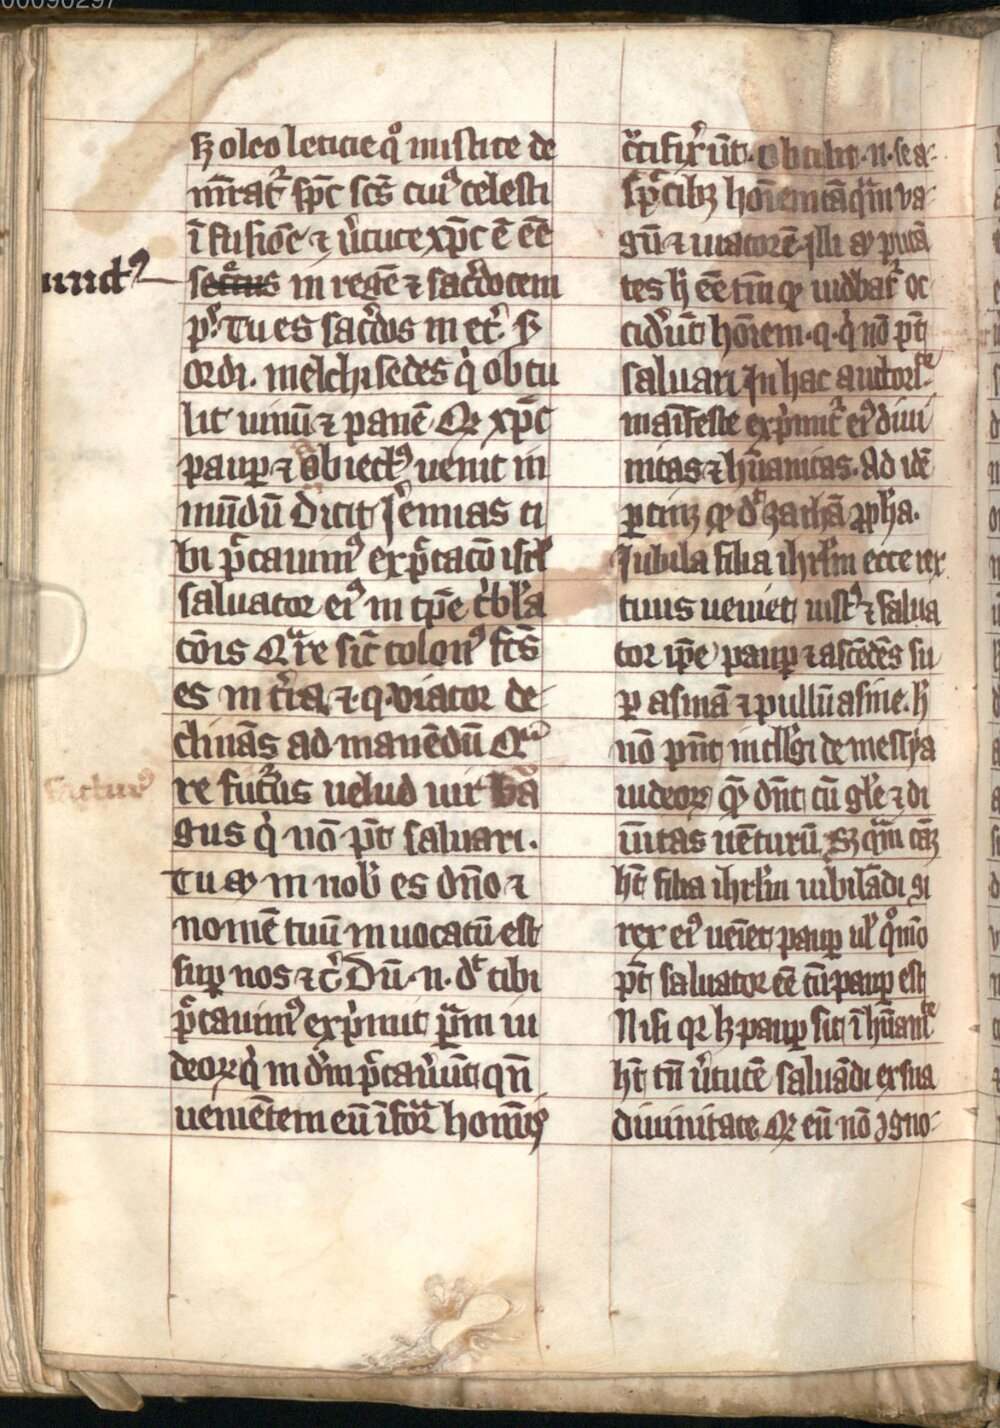 00090297
sꝫ oleo leticie qͦ mistice de
mr̄at᷑ sp̄c sc̄s cuiꝰ celesti
ī fusiōe ⁊ ỽtute xp̄c ē eē
unctꝰ
in regē ⁊ sac̓dotem
pˢ. Tu es sac̓dos in et̓. s̄
ordi. melchisedes q̓ obtu
lit uinū ⁊ panē Qꝛ xp̄c
pauꝑ ⁊ abiectꝰ uenit in
mūdū Dicit Je̓mias ti
bi p̄cauimꝰ exp̄ctacō isrl̓
saluator eiꝰ in tp̄e t̓bl̓a
cōis Qͣre sic̄ colonꝰ fc̄s
es in t̓ra ⁊ .q. viator de
clināsad manēdū Qͣ
re futurus velud uir ua
gus q̓ nō pōt saluari.
Tu aū in nob̓ es dn̄e ⁊
nomē tuū inuocatū est
suꝑ nos ⁊ c̓ Dū .n. dt̓ tibi
p̄cauimꝰ exp̓mit ꝑ̄am iu
deoꝝ q̓ in dn̄m p̄cau̓ūt qn̄
uenientem eū ī for̄a homīs
c̓cifix̓ūt. Obtulit .n. se a-
spc̄ibꝫ hoīem tāq̄m va-
gū ⁊ uiatorē Jlli aū puta
tes h̄ eē tm̄ qꝫ uidebat᷑ oc
cid̓ūt hōīem .q. q̓ nō pōt
saluari In hac auctorⁱᵗᵉ
manifeste exp̓mit᷑ eiꝰ diui
nitas ⁊ hūanitas. Ad idē
ꝑtinꝫ qꝫ dt̓ zachā ꝓph̄a.
Jubila filia ihrl̓m ecce rex
tuus ueniet iustꝰ ⁊ salua
tor ip̄e pauꝑ ⁊ ascēdēs su
ꝑ asinā ⁊ pullū asine. h̄
nō pn̄t intll̓gi de messya
iudeoꝝ qꝫ dn̄t cū gl̓e ⁊ di
uitas uēturū Sꝫ q̄m cām
hēt filia ihrl̓m iubilādi si
rex eiꝰ ueīet pauꝑ ul̓ qͦmō
pōt saluator eē cū pauꝑ est
Nisi qꝛ lꝫ pauꝑ sit ī hūanⁱᵗᵉ
hēt tn̄ ỽtutē saluādi ex sua
diuinitate Qꝛ eū nō ꝯgno-